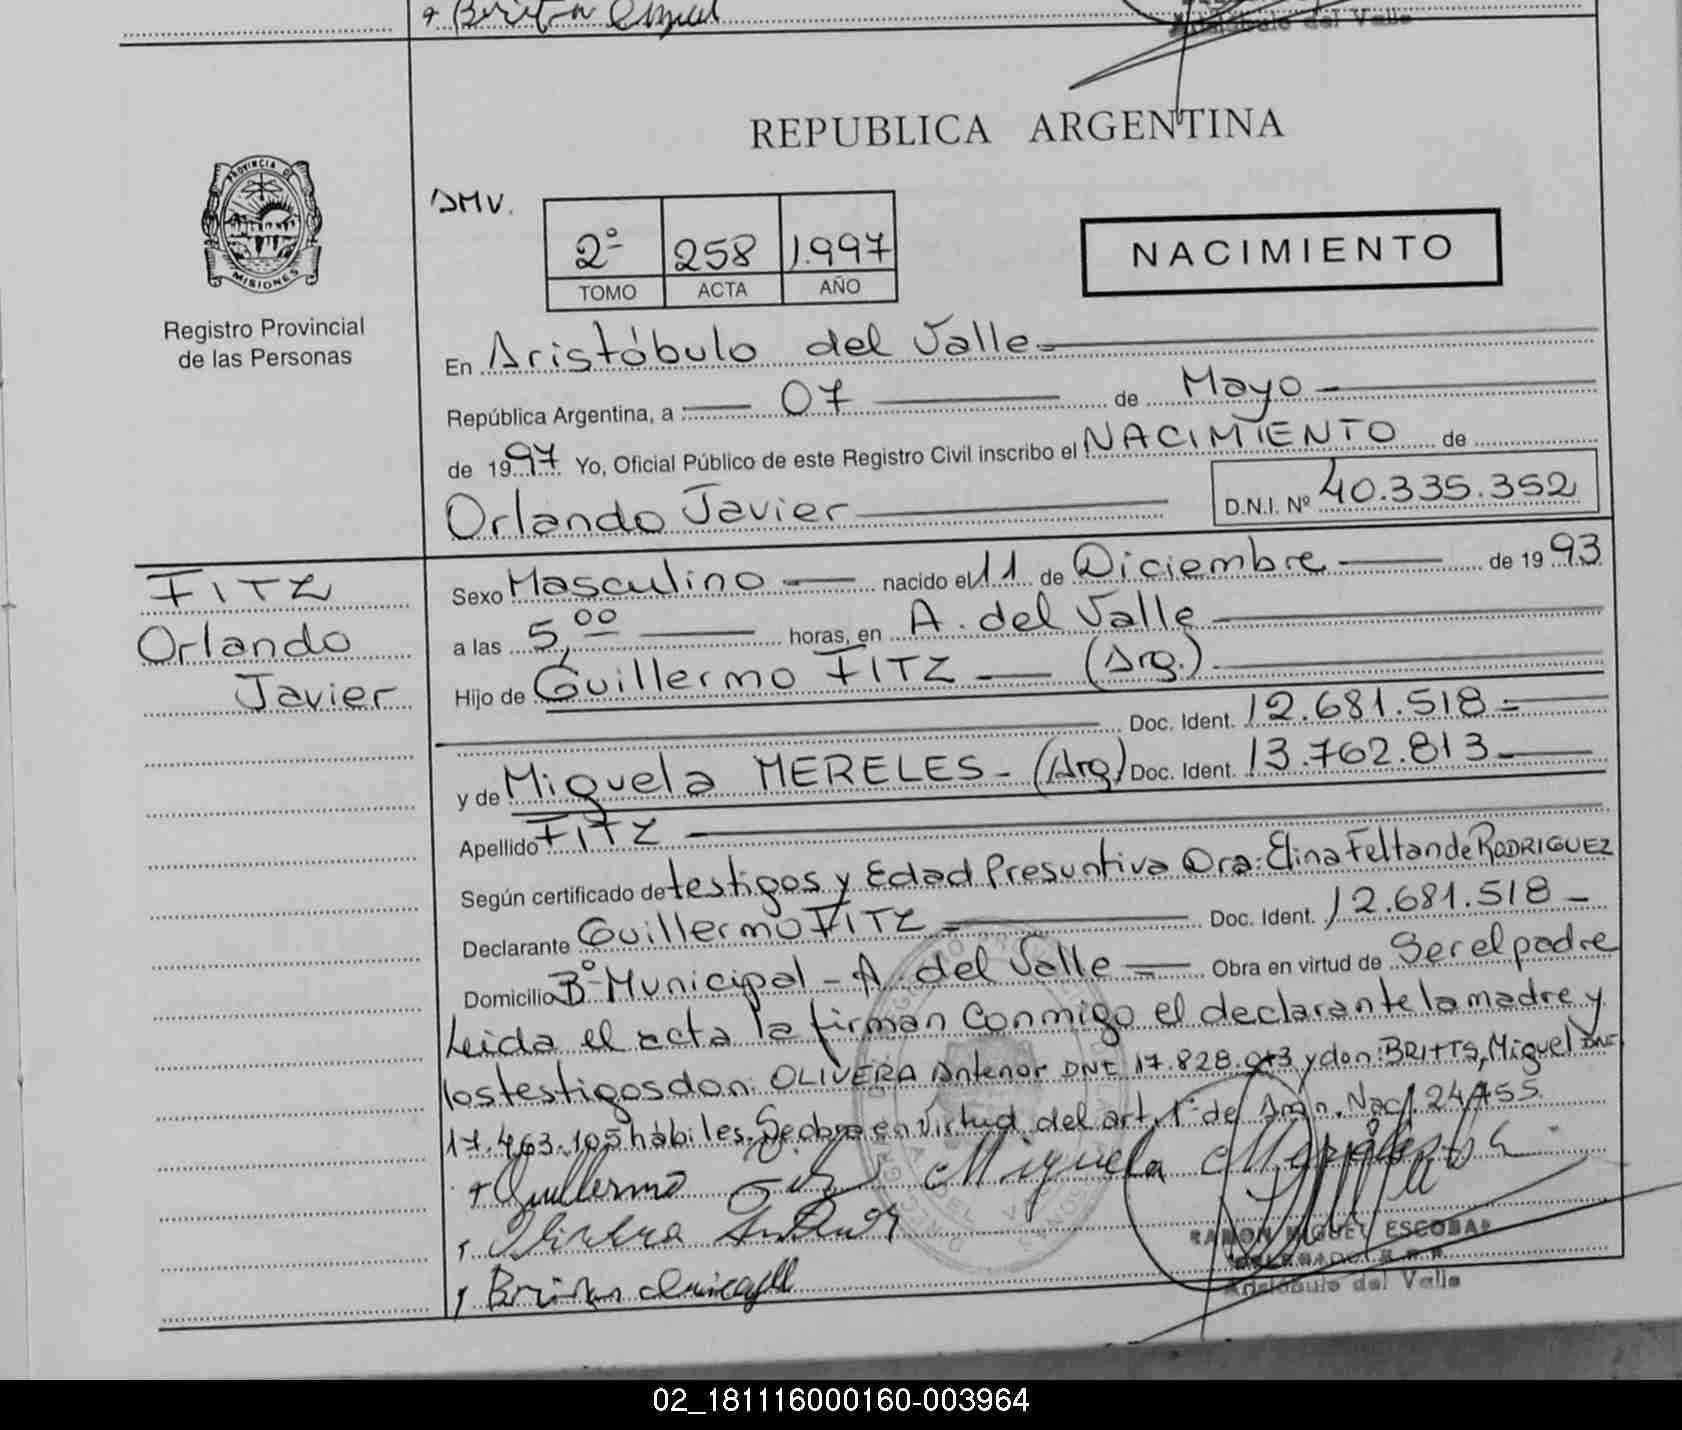 REPUBLICA ARGENTINA
PROVINCIA DE
MISIONES
Registro Provincial
de las Personas
DMV.
2º 258 1.997
TOMO ACTA AÑO
NACIMIENTO
En Aristóbulo del Valle
República Argentina, a 07 de Mayo
de 1997 Yo, Oficial Público de este Registro Civil inscribo el NACIMIENTO de
Orlando Javier D.N.I. Nº 40.335.352
FITZ
Orlando
Javier
Sexo Masculino nacido el 11 de Diciembre de 1993
a las 5,00 horas, en A. del Valle
Hijo de Guillermo FITZ (Arg.)
Doc. Ident. 12.681.518
y de Miguela MERELES (Arg) Doc. Ident. 13.762.813
Apellido FITZ
Según certificado de testigos y Edad Presuntiva Dra: Elina Feltan de RODRIGUEZ
Declarante Guillermo FITZ Doc. Ident. 12.681.518
Domicilio Bº Municipal - A. del Valle Obra en virtud de Ser el padre
Leida el acta la firman conmigo el declarante la madre y
los testigos don: OLIVERA Antenor DNI 17.828. y don: BRITTS, Miguel DNI
17.463.105 hábiles. Se obra en virtud del art. 1º de Nac. 24.755.
Guillermo Miguela Mereles
Olivera Antenor
RAMON MIGUEL ESCOBAR
DELEGADO R.P.P.
Aristóbulo del Valle
02_181116000160-003964